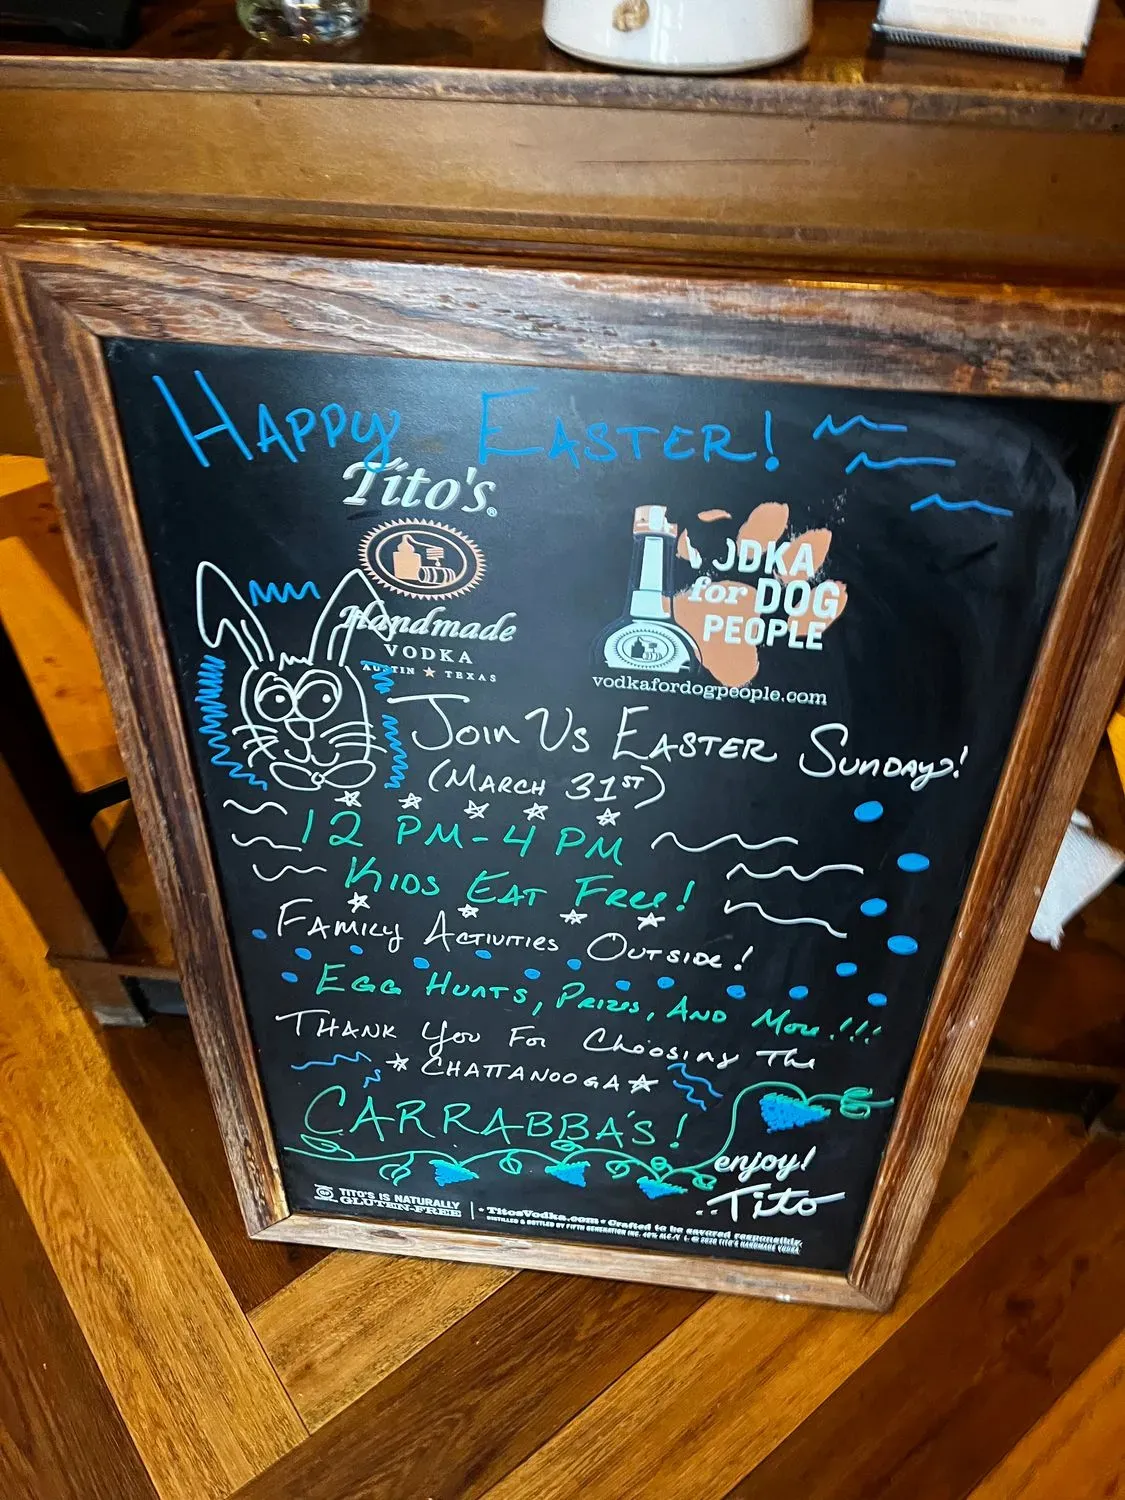 HAPPY EASTER!
Tito's®
Handmade
VODKA
AUSTIN ★ TEXAS
VODKA
for DOG
PEOPLE
vodkafordogpeople.com
JOIN US EASTER SUNDAY!
(MARCH 31ST)
12 PM-4 PM
KIDS EAT FREE!
FAMILY ACTIVITIES OUTSIDE!
EGG HUNTS, PRIZES, AND MORE!!!
THANK YOU FOR CHOOSING THE
CHATTANOOGA
CARRABBA'S!
enjoy!
Tito
TITO'S IS NATURALLY
GLUTEN-FREE
• TitosVodka.com • Crafted to be savored responsibly.
DISTILLED & BOTTLED BY FIFTH GENERATION INC. 40% ALC./VOL. © 2020 TITO'S HANDMADE VODKA